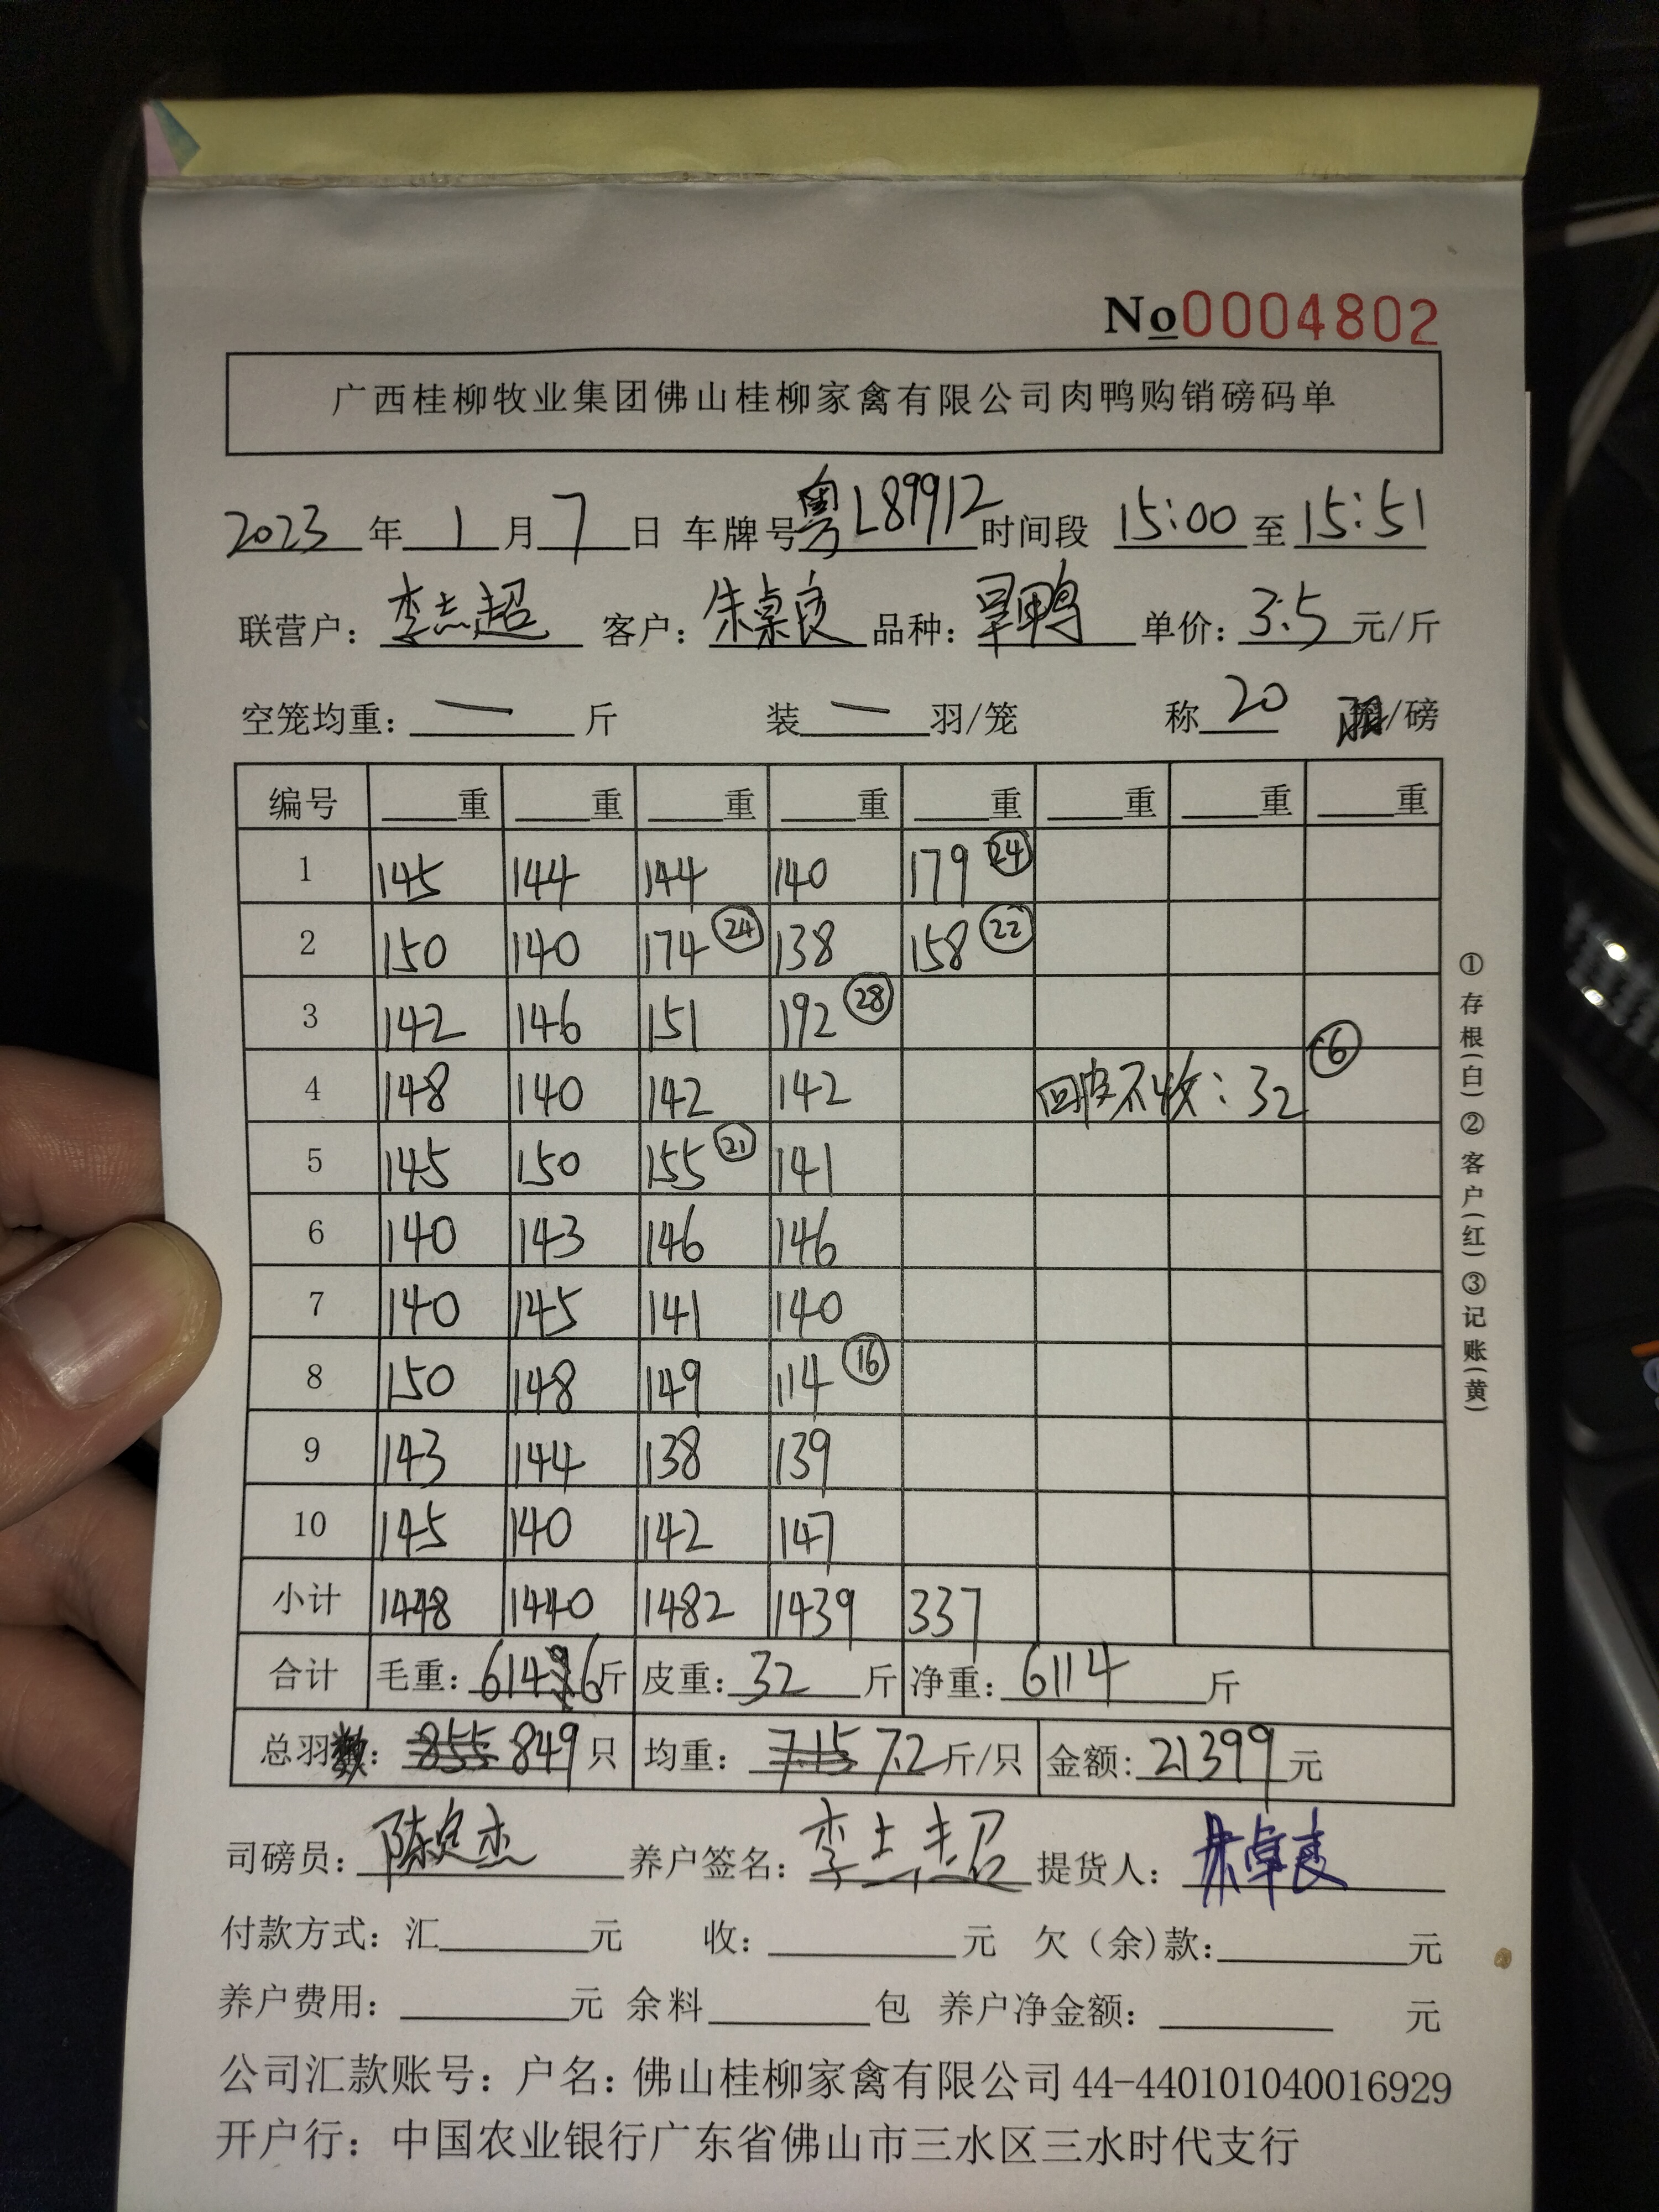 No0004802
广西桂柳牧业集团佛山桂柳家禽有限公司肉鸭购销磅码单
2023年1月7日 车牌号粤L89912时间段 15:00至15:51
联营户：李志超 客户：朱桌良 品种：旱鸭 单价：3.5元/斤
空笼均重：一斤 装一羽/笼 称20 羽/磅
编号 重 重 重 重 重 重 重 重
1 145 144 144 140 179 24
2 150 140 174 24 138 158 22
3 142 146 151 192 28
4 148 140 142 142 回皮不收：32 -6
5 145 150 155 21 141
6 140 143 146 146
7 140 145 141 140
8 150 148 149 114 16
9 143 144 138 139
10 145 140 142 147
小计 1448 1440 1482 1439 337
合计 毛重：6146斤 皮重：32斤 净重：6114斤
总羽数：855 849只 均重：7.15 7.2斤/只 金额：21399元
司磅员：陈定杰 养户签名：李志超 提货人：朱卓良
付款方式：汇 元 收： 元 欠（余)款： 元
养户费用： 元 余料 包 养户净金额： 元
公司汇款账号：户名：佛山桂柳家禽有限公司44-440101040016929
开户行：中国农业银行广东省佛山市三水区三水时代支行
①存根(白)②客户(红)③记账(黄)